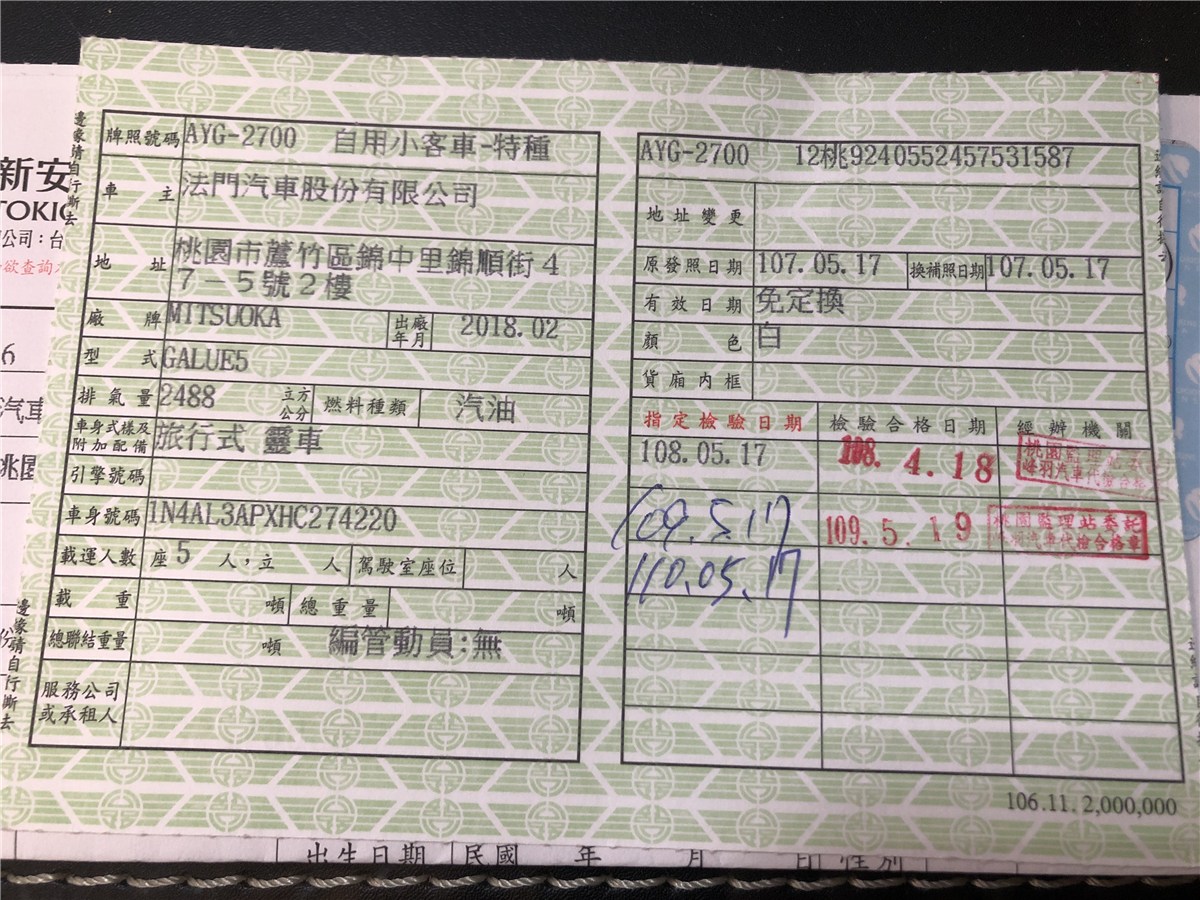 邊緣請自行撕去
新安
TOKIO
公司：台
欲查詢
6
汽車
桃園
牌照號碼 AYG-2700 自用小客車-特種
車主 法門汽車股份有限公司
地址 桃園市蘆竹區錦中里錦順街４
７－５號２樓
廠牌 MITSUOKA 出廠年月 2018.02
型式 GALUE5
排氣量 2488 立方公分 燃料種類 汽油
車身式樣及附加配備 旅行式 靈車
引擎號碼
車身號碼 1N4AL3APXHC274220
載運人數 座 5 人，立 人 駕駛室座位 人
載重 噸 總重量 噸
總聯結重量 噸 編管動員:無
服務公司或承租人
邊緣請自行撕去
AYG-2700 12桃9240552457531587
地址變更
原發照日期 107.05.17 換補照日期 107.05.17
有效日期 免定換
顏色 白
貨廂內框
指定檢驗日期 檢驗合格日期 經辦機關
108.05.17 108. 4. 18 桃園監理站委託
峰羽汽車代檢合格
109.5.17 109. 5. 19 桃園監理站委託
峰羽汽車代檢合格章
110.05.17
106.11. 2,000,000
出生日期 民國 年 月 日 性別